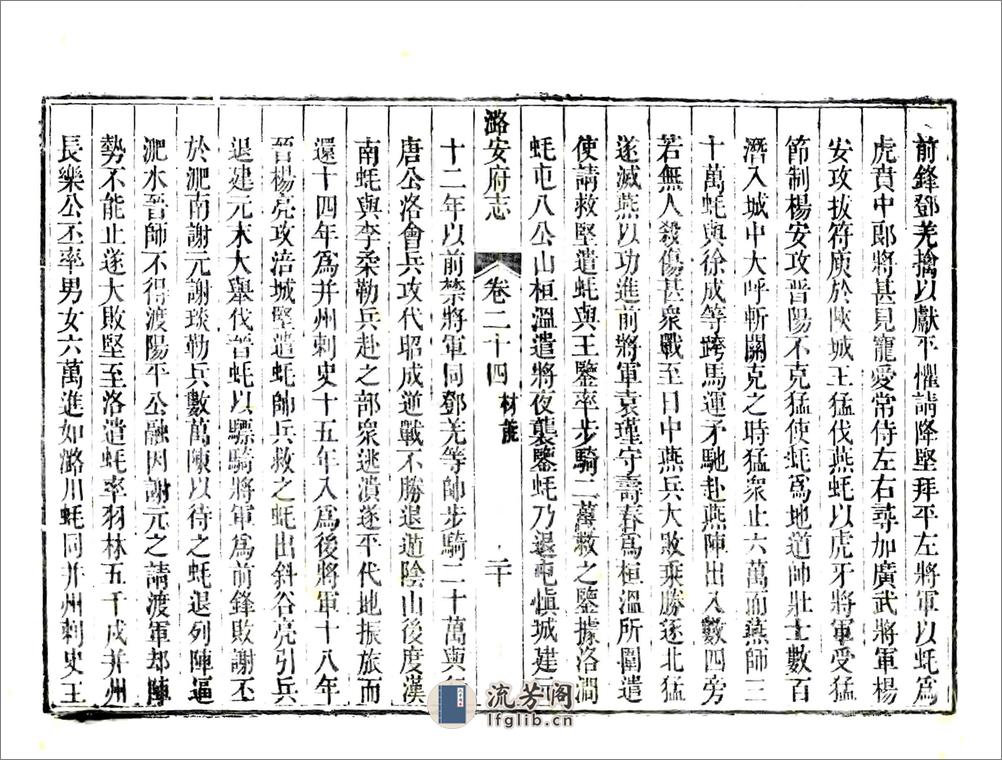 前鋒鄧羌擒以獻平懼請降堅拜平左將軍以蚝爲
虎賁中郎將甚見寵愛常侍左右尋加廣武將軍楊
安攻拔苻庾於陝城王猛伐燕蚝以虎牙將軍受猛
節制楊安攻晉陽不克猛使蚝爲地道帥壯士數百
潛入城中大呼斬關克之時猛衆止六萬而燕師三
十萬蚝與徐成等跨馬運矛馳赴燕陣出入數四旁
若無人殺傷甚衆戰至日中燕兵大敗乘勝逐北猛
遂滅燕以功進前將軍袁瑾守壽春爲桓溫所圍遣
使請救堅遣蚝與王鑒率步騎二萬救之鑒據洛澗
蚝屯八公山桓溫遣將夜襲鑒蚝乃退屯愼城建元
潞安府志
卷二十四
材能
二十
十二年以前禁將軍同鄧羌等帥步騎二十萬與
唐公洛會兵攻代昭成逆戰不勝退遁陰山後度漢
南蚝與李柔勒兵赴之部衆逃潰遂平代地振旅而
還十四年爲并州刺史十五年入爲後將軍十八年
晉楊亮攻涪城堅遣蚝帥兵救之蚝出斜谷亮引兵
退建元末大舉伐晉蚝以驃騎將軍爲前鋒敗謝丕
於淝南謝元謝琰勒兵數萬陳以待之蚝退列陣逼
淝水晉師不得渡陽平公融因謝元之請渡軍却陣
勢不能止遂大敗堅至洛遣蚝率羽林五千戍并州
長樂公丕率男女六萬進如潞川蚝同并州刺史王
流芳阁
lfglib.cn